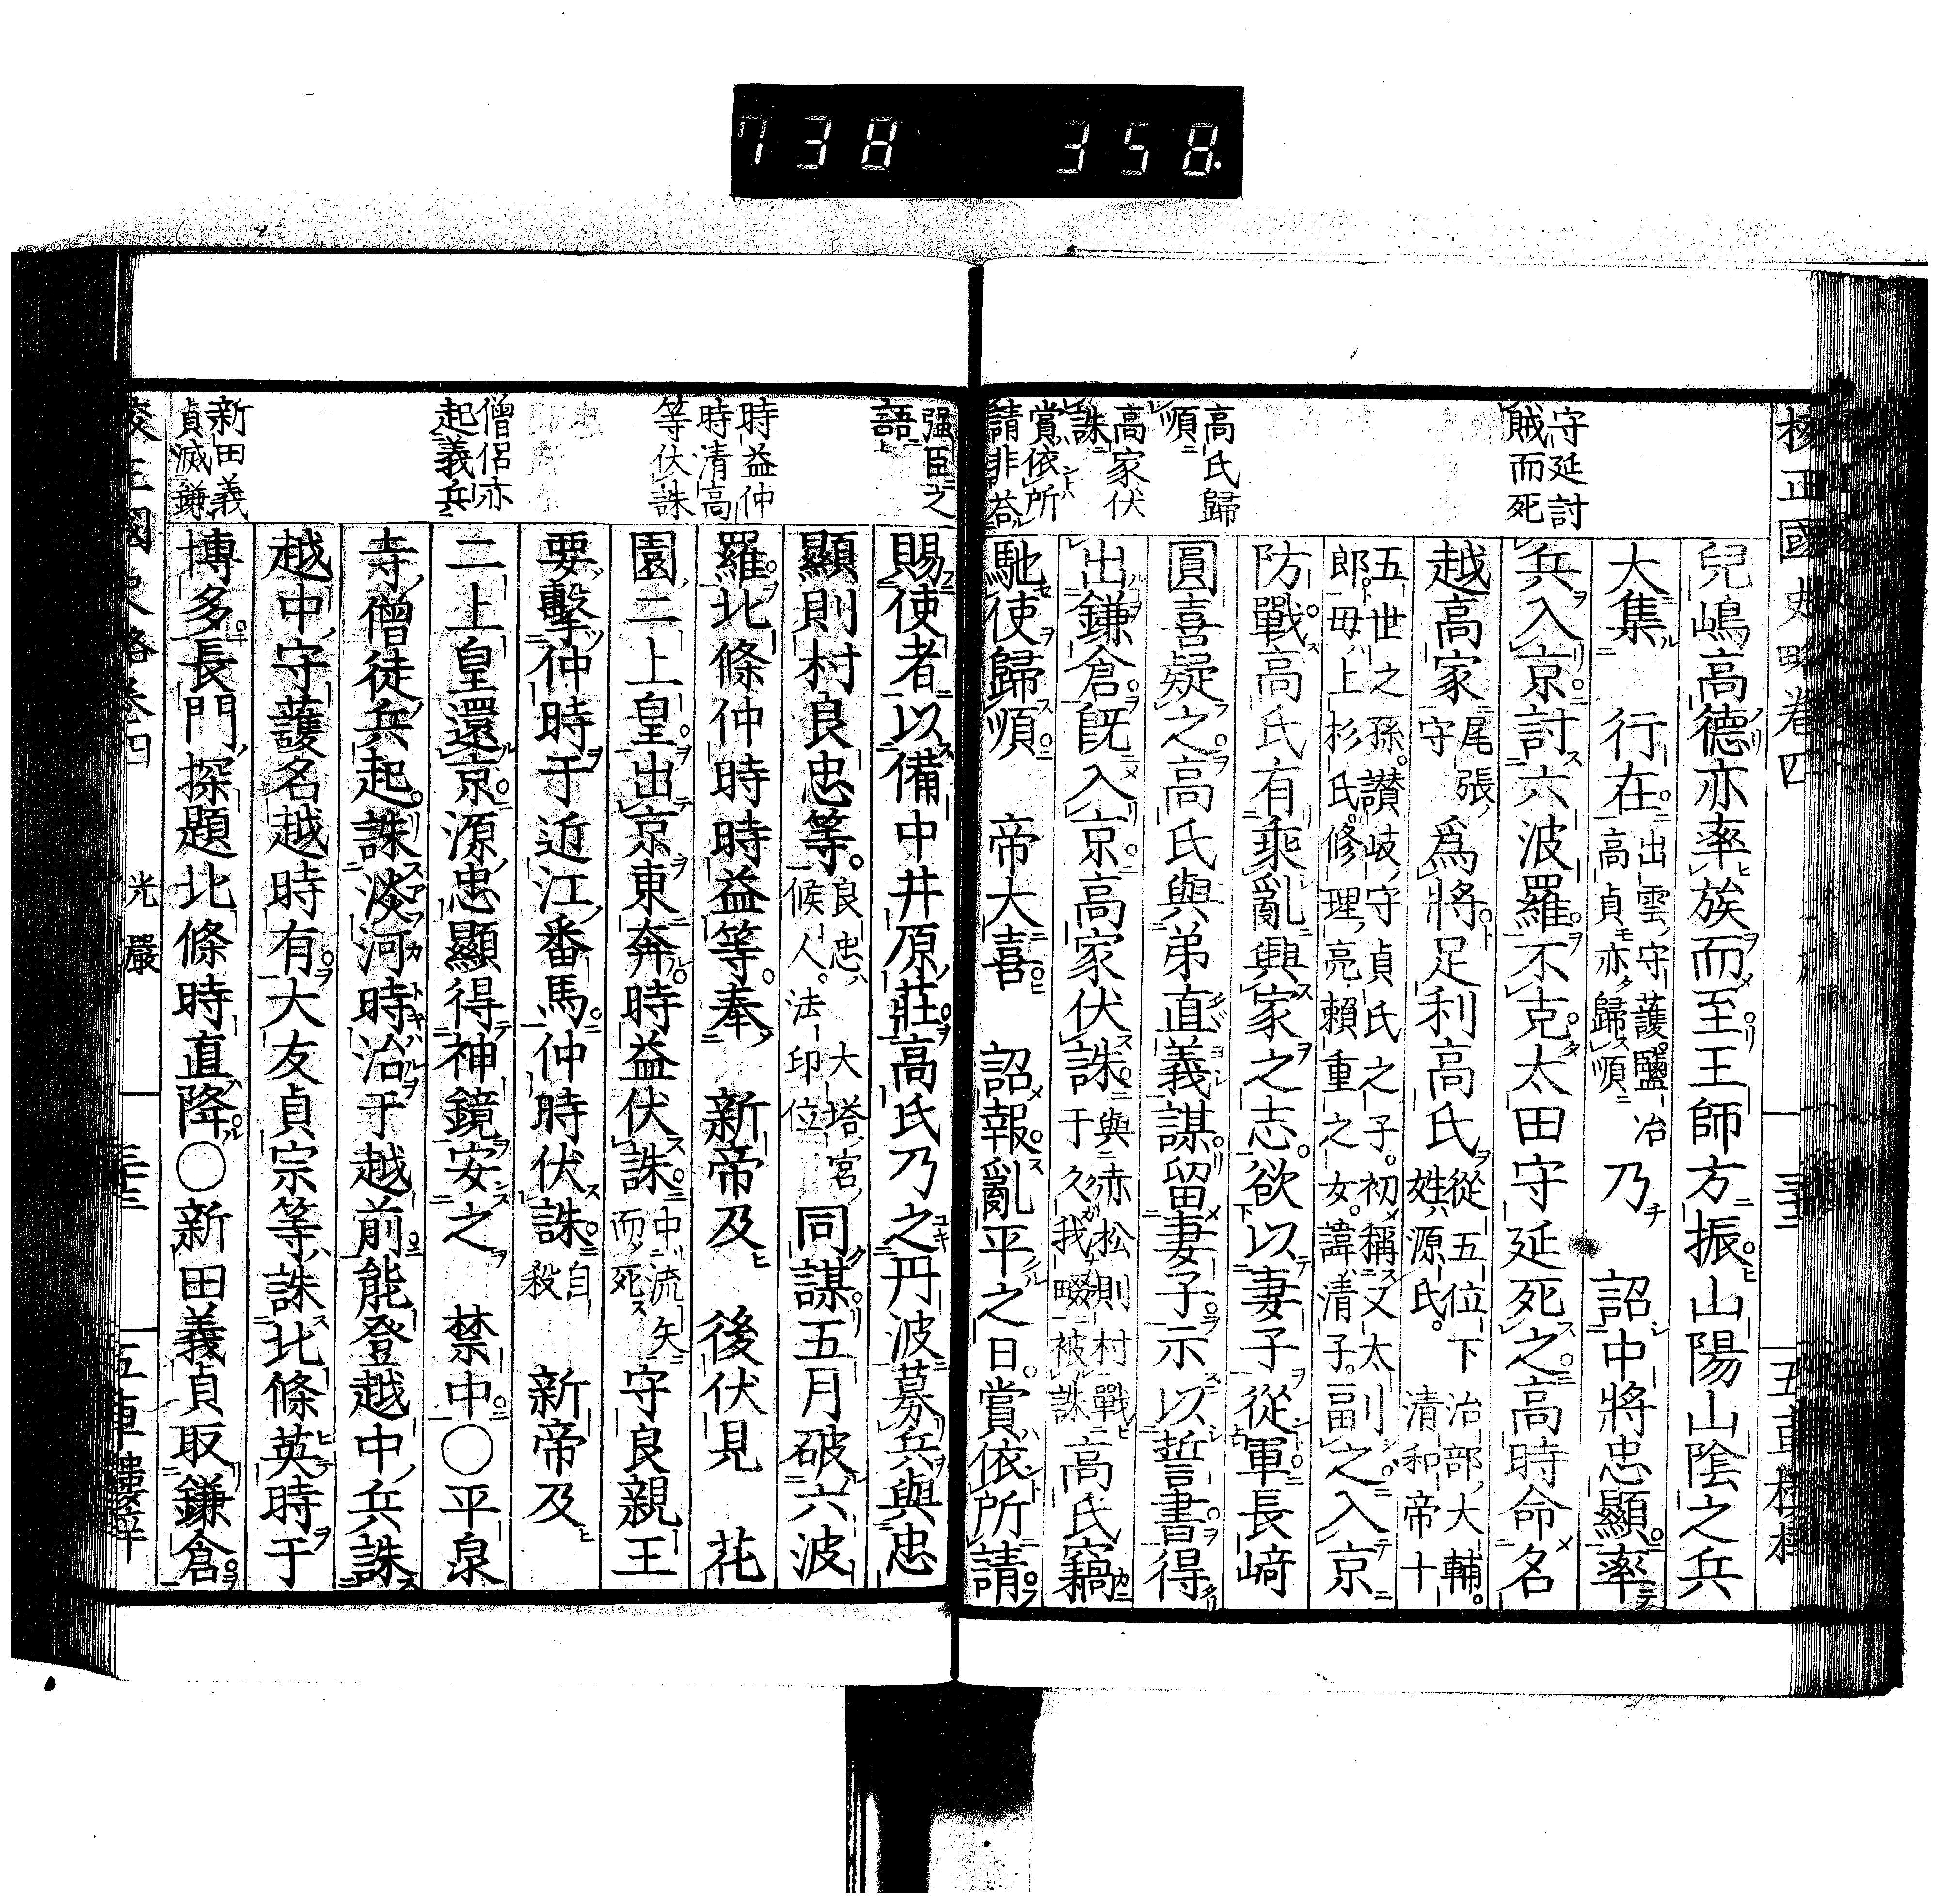 738 358
校正國史略卷四
三十二
五車樓梓
守延討
賊而死
高氏歸
順
高家伏
誅
賞依所
請非益
兒嶋高德亦率族而至王師方振山陽山陰之兵
大集 行在出雲守護鹽冶高貞亦歸順乃 詔中將忠顯率
兵入京討六波羅不克太田守延死之高時命名
越高家尾張守爲將足利高氏從五位下治部大輔。姓源氏。清和帝十
五世之孫。讚岐守貞氏之子。初稱又太郎母上杉氏。修理亮賴重之女。諱清子。副之入京
防戰高氏有乘亂興家之志。欲以妻子從軍長﨑
圓喜疑之高氏與弟直義謀留妻子示以誓書得
出鎌倉既入京高家伏誅與赤松則村戰于久我畷被誅高氏竊
馳使歸順 帝大喜 詔報亂平之日。賞依所請
强臣之
語
時益仲
時清高
等伏誅
僧侶亦
起義兵
新田義
貞滅鎌
賜使者以備中井原莊高氏乃之丹波募兵與忠
顯則村良忠等。良忠大塔宮候人。法印位同謀五月破六波
羅北條仲時時益等。奉 新帝及 後伏見 花
園二上皇出京東奔時益伏誅中流矢而死守良親王
要擊仲時于近江番馬仲時伏誅自殺 新帝及
二上皇還京源忠顯得神鏡安之 禁中○平泉
寺僧徒兵起。誅淡河時治于越前能登越中兵誅
越中守護名越時有大友貞宗等誅北條英時于
博多長門探題北條時直降○新田義貞取鎌倉
校正國史略卷四
光嚴
三十三
五車樓梓